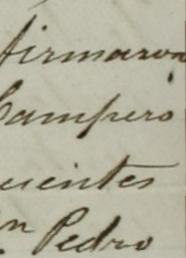 firmaron
Campero
uentes
n Pedro